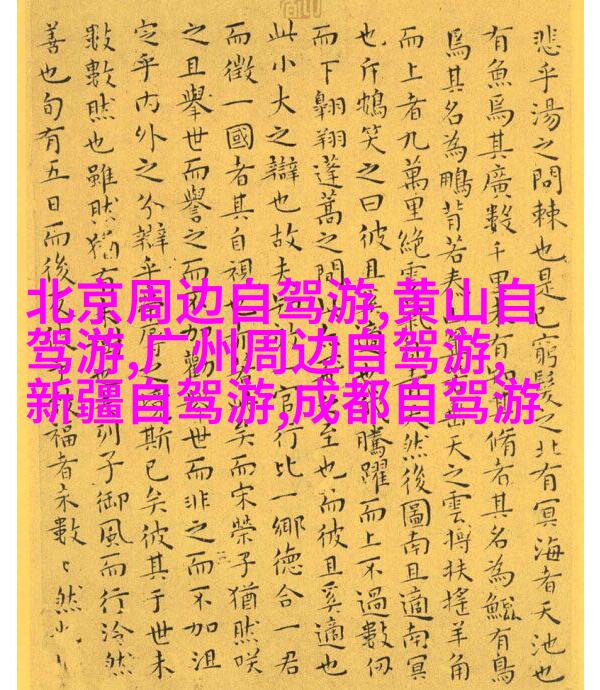 北京周边自驾游,黄山自
驾游,广州周边自驾游,
新疆自驾游,成都自驾游
悲乎湯之問棘也是已窮髮之北有冥海者天池也
有魚焉其廣數千里未有知其脩者其名為鯤有鳥
焉其名為鵬背若泰山天之雲摶扶搖羊角
而上者九萬里絕雲氣天然後圖南且適南冥
也斥鴳笑之曰彼且奚適也騰躍而上不過數仞
而下翱翔蓬蒿之間至也而彼且奚適也
此小大之辯也故夫官行比一鄉德合一君
而徵一國者其自視矣而宋榮子猶然咲
之且舉世而譽之而不加勸舉世而非之而不加沮
定乎內外之分辯乎斯已矣彼其于世未
數數然也雖然猶有列子御風而行泠然
善也旬有五日而後福者未數〻然